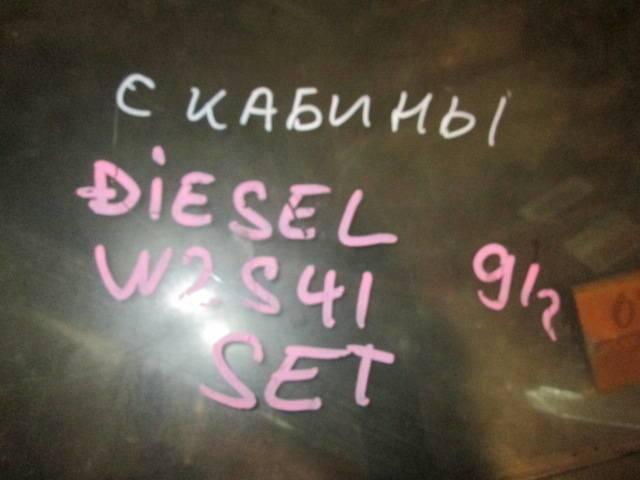 С КАБИНЫ
DiESEL
W2S41
SET
91/2